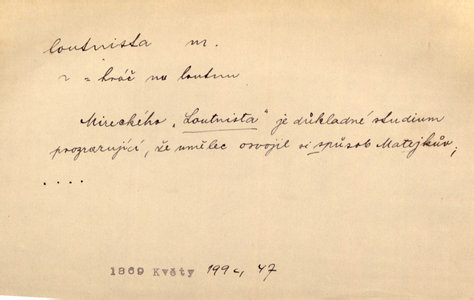 loutnista m.
= hráč na loutnu
Mireckého „Loutnista“ je důkladné studium
prozrazující, že umělec osvojil si spůsob Matejkův;
....
1869 Květy 199c, 47